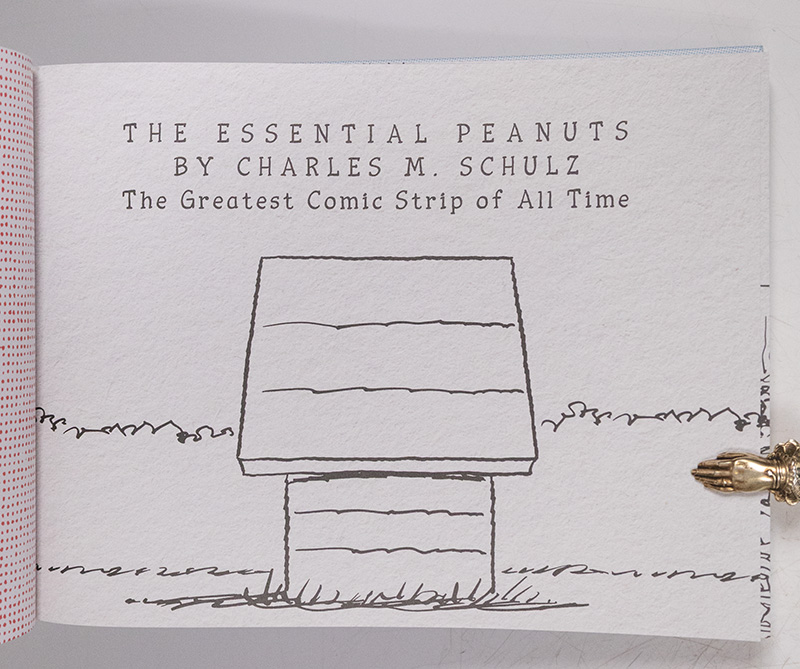 THE ESSENTIAL PEANUTS
BY CHARLES M. SCHULZ
The Greatest Comic Strip of All Time